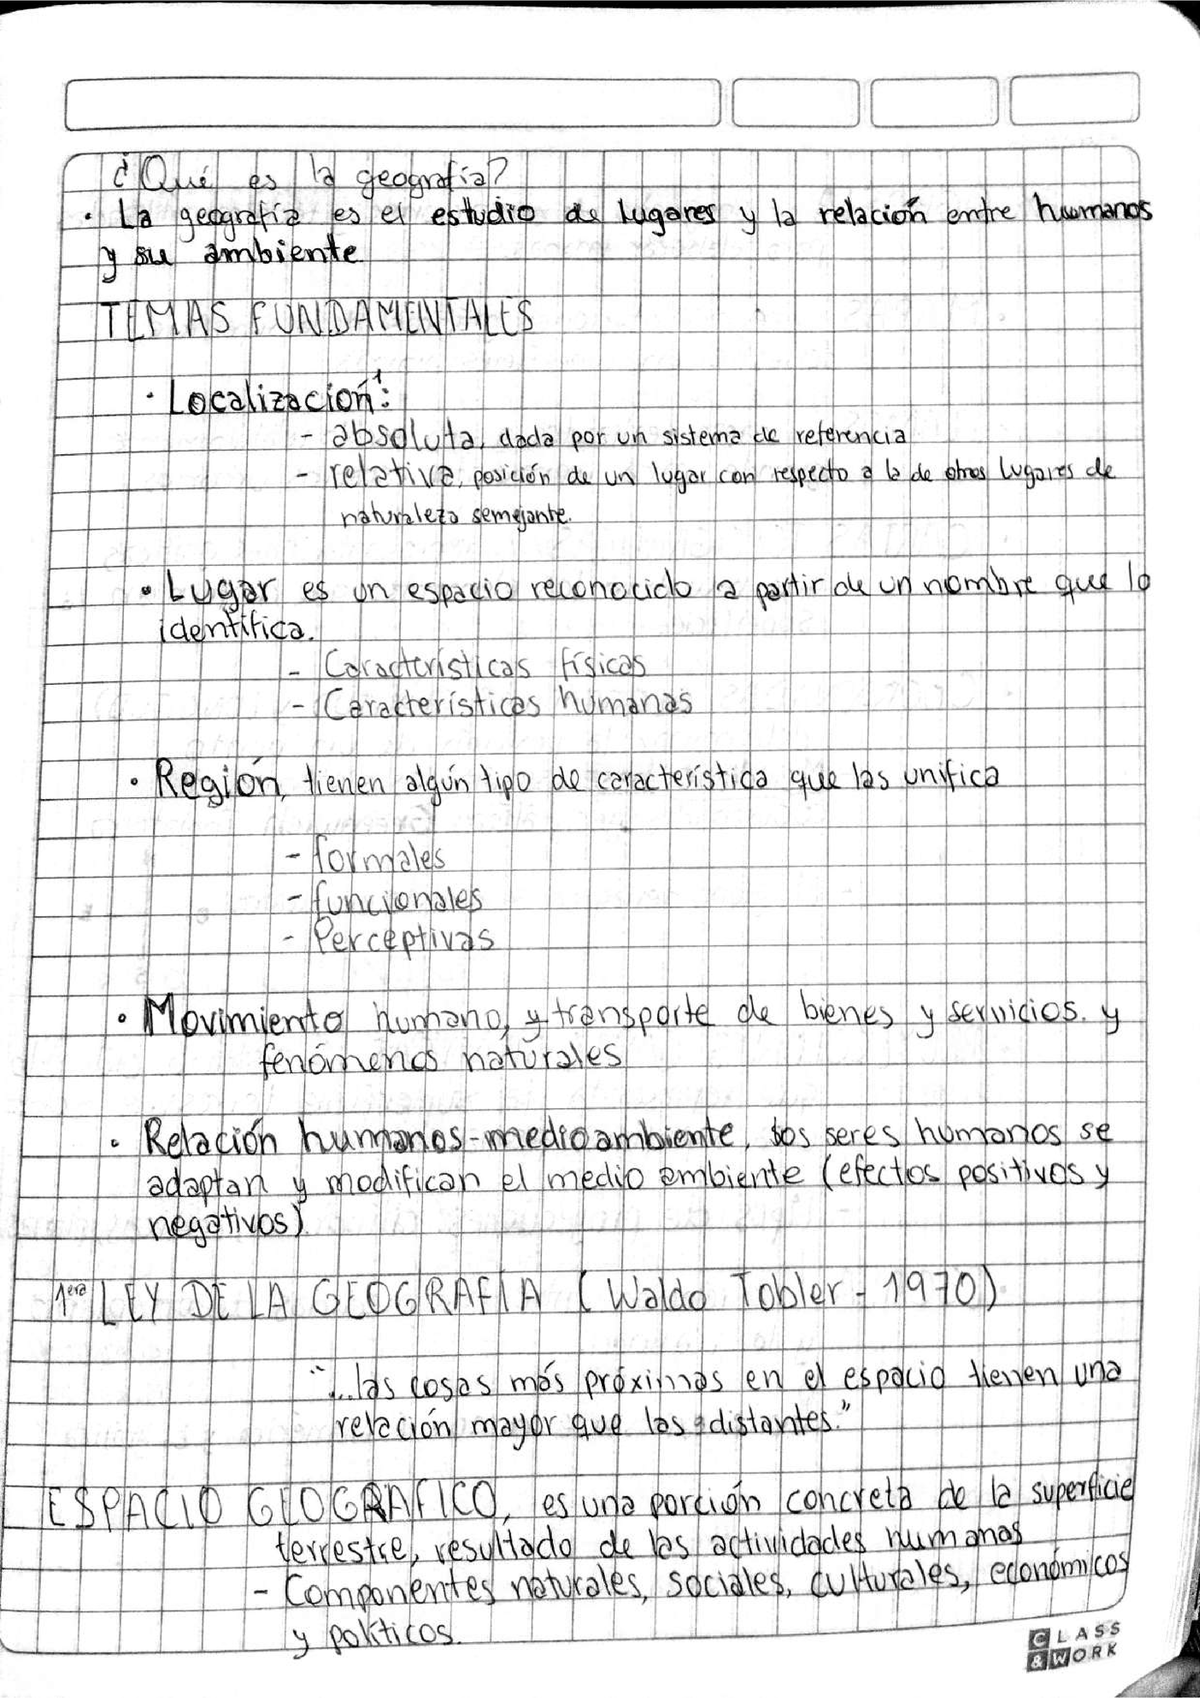 ¿Qué es la geografía?
• La geografía es el estudio de lugares y la relación entre humanos
y su ambiente
TEMAS FUNDAMENTALES
• Localización:
- absoluta, dada por un sistema de referencia
- relativa, posición de un lugar con respecto a la de otros lugares de
naturaleza semejante.
• Lugar es un espacio reconocido a partir de un nombre que lo
identifica.
- Características físicas
- Características humanas
• Región, tienen algún tipo de característica que las unifica
- formales
- funcionales
- Perceptivas
• Movimiento humano, y transporte de bienes y servicios. y
fenómenos naturales
• Relación humanos-medio ambiente, los seres humanos se
adaptan y modifican el medio ambiente (efectos positivos y
negativos)
1era LEY DE LA GEOGRAFÍA (Waldo Tobler - 1970)
"...las cosas más próximas en el espacio tienen una
relación mayor que las distantes."
ESPACIO GEOGRAFICO, es una porción concreta de la superficie
terrestre, resultado de las actividades humanas
- Componentes naturales, sociales, culturales, económicos
y políticos.
CLASS
&WORK